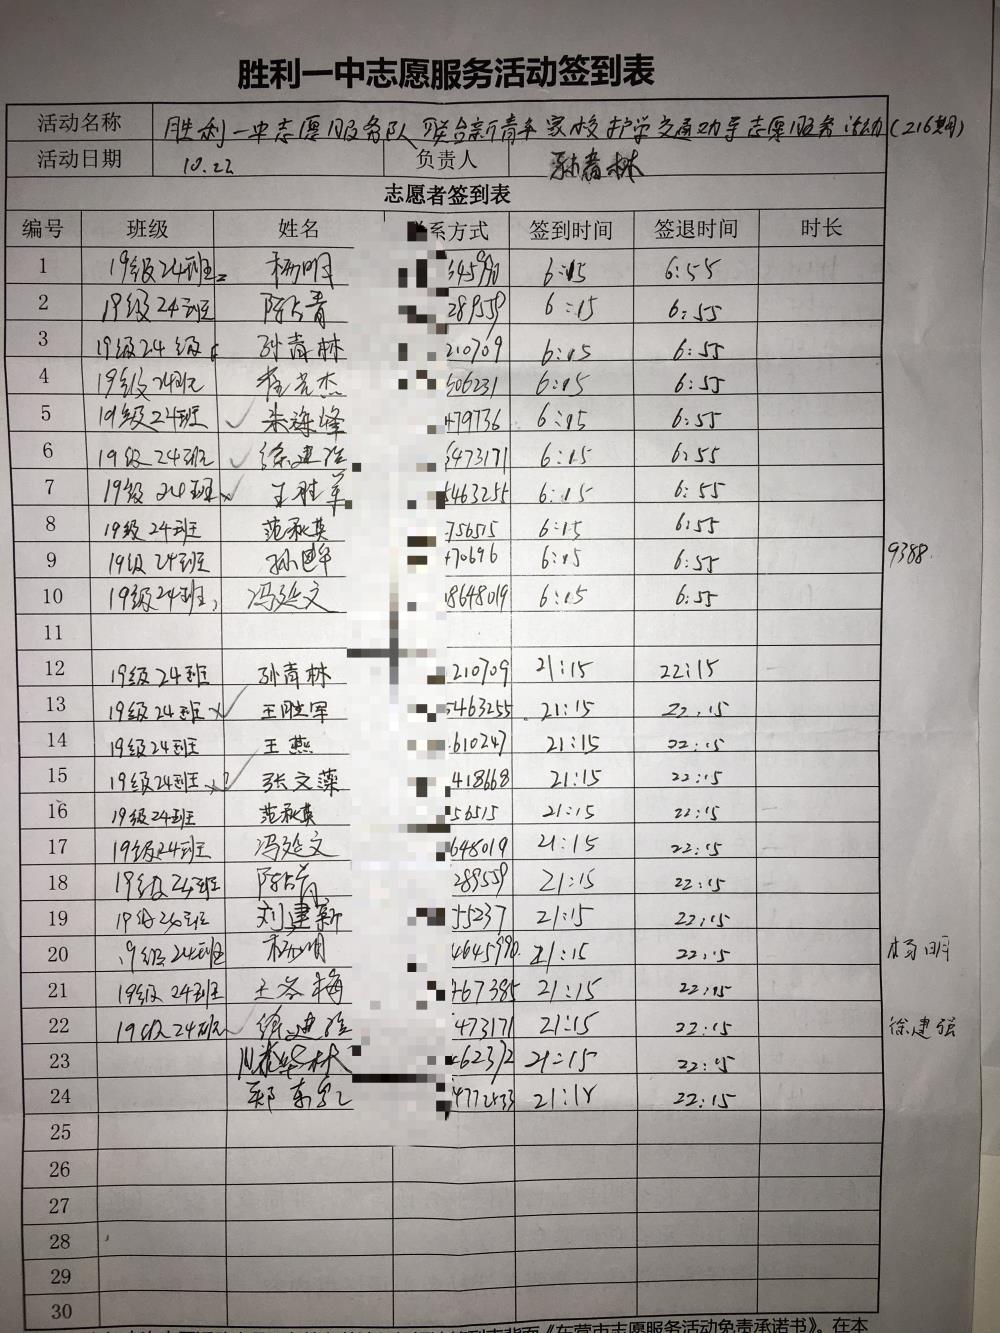 胜利一中志愿服务活动签到表
活动名称 胜利一中志愿服务队联合新青年家校护学交通劝导志愿服务活动(216期)
活动日期 10.22 负责人 孙青林
志愿者签到表
编号 班级 姓名 系方式 签到时间 签退时间 时长
1 19级24班 杨明 6:15 6:55
2 19级24班 陈占青 289559 6:15 6:55
3 19级24级 孙青林 210709 6:15 6:55
4 19级24班 杰 506231 6:15 6:55
5 19级24班 朱 峰 479736 6:15 6:55
6 19级24班 徐建强 473171 6:15 6:55
7 19级24班 王胜军 5463255 6:15 6:55
8 19级24班 范秋英 756515 6:15 6:55
9 19级24班 孙 70696 6:15 6:55 9388
10 19级24班 冯延文 8648019 6:15 6:55
11
12 19级24班 孙青林 210709 21:15 22:15
13 19级24班 王胜军 5463255 21:15 22:15
14 19级24班 王燕 610247 21:15 22:15
15 19级24班 张文藻 418668 21:15 22:15
16 19级24班 范秋英 56515 21:15 22:15
17 19级24班 冯延文 648019 21:15 22:15
18 19级24班 陈占青 289559 21:15 22:15
19 19级24班 刘建新 55237 21:15 22:15
20 19级24班 杨明 4645990 21:15 22:15 杨明
21 19级24班 王冬梅 767385 21:15 22:15
22 19级24班 徐建强 473171 21:15 22:15 徐建强
23 21:15 22:15
24 郑 22:15
25
26
27
28
29
30
《东营市志愿服务活动免责承诺书》。在本